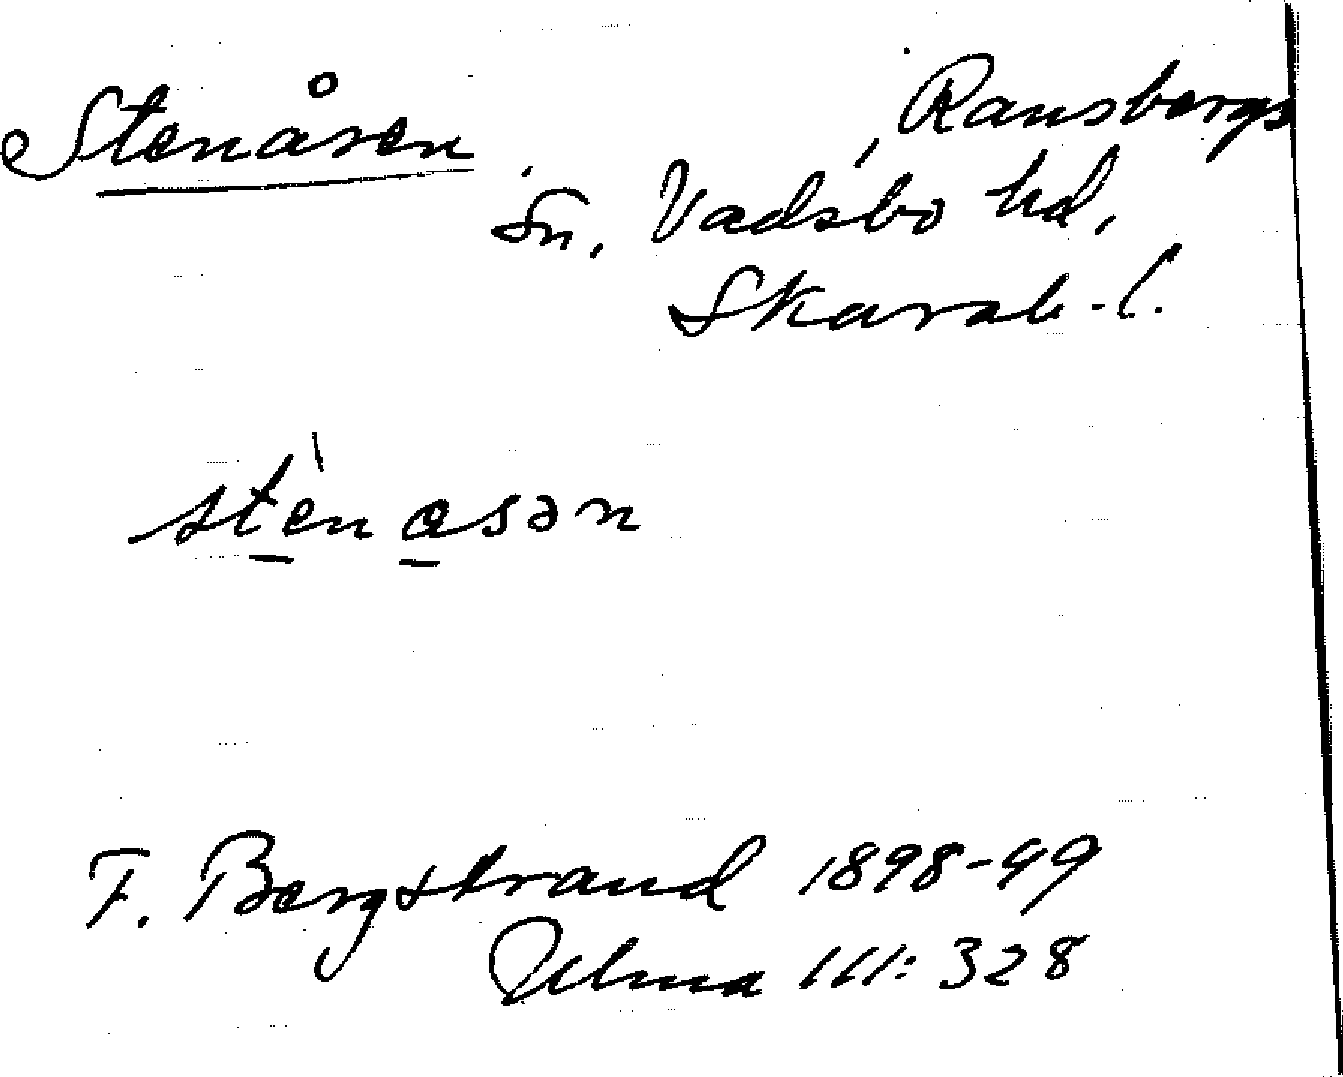 Stenåsen, Ransbergs
sn, Vadsbo hd,
Skarab.-l.
stènasən
F. Bergstrand 1898-99
Ulma 111: 328